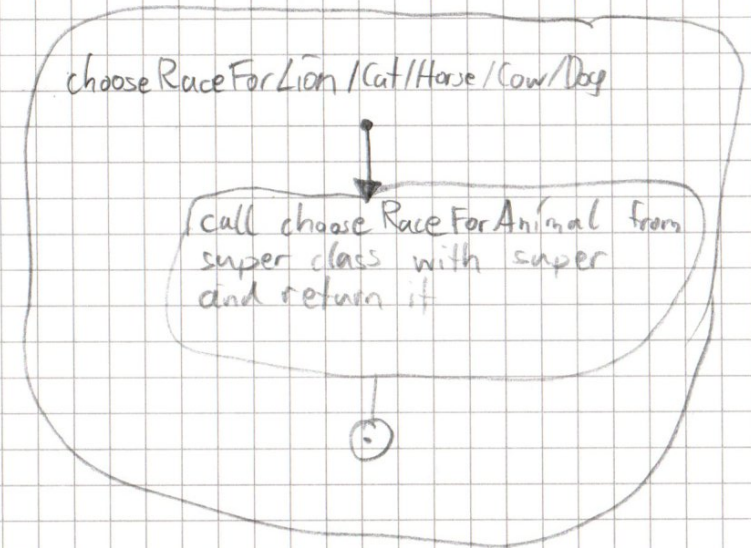 chooseRaceForLion/Cat/Horse/Cow/Dog
call chooseRaceForAnimal from
super class with super
and return it